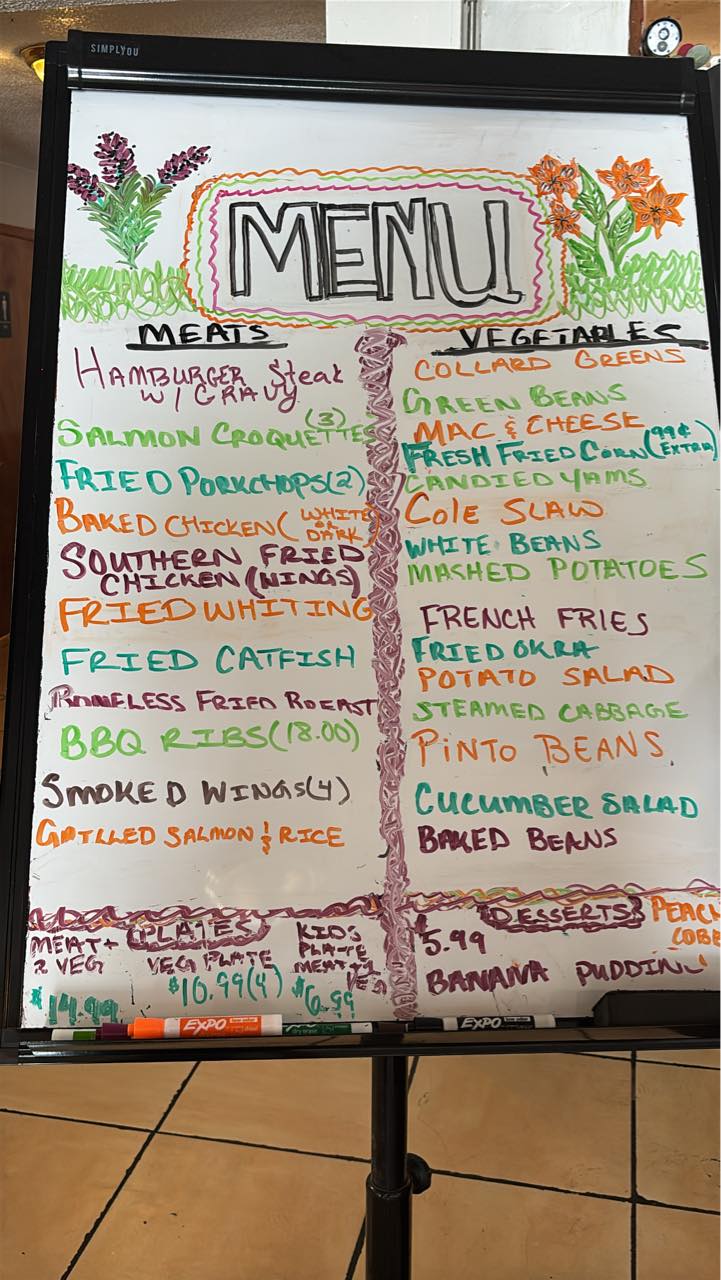 SIMPLYOU
MENU
MEATS
HAMBURGER Steak
W/ GRAVY
SALMON CROQUETTES (3)
FRIED PORKCHOPS(2)
BAKED CHICKEN ( WHITE
OR
DARK )
SOUTHERN FRIED
CHICKEN (WINGS)
FRIED WHITING
FRIED CATFISH
BONELESS FRIED BREAST
BBQ RIBS (18.00)
SMOKED WINGS(4)
GRILLED SALMON & RICE
VEGETABLES
COLLARD GREENS
GREEN BEANS
MAC & CHEESE
FRESH FRIED CORN (99¢
EXTRA)
CANDIED YAMS
COle SLAW
WHITE BEANS
MASHED POTATOES
FRENCH FRIES
FRIED OKRA
POTATO SALAD
STEAMED CABBAGE
PiNTO BEANS
CUCUMBER SALAD
BAKED BEANS
PLATES
MEAT +
2 VEG
$14.99
VEG PLATE
$10.99(4)
KIDS
PLATE
MEAT + 1
VEG
$6.99
DESSERTS
$5.99
PEACH
COBB
BANANA PUDDING
EXPO
EXPO